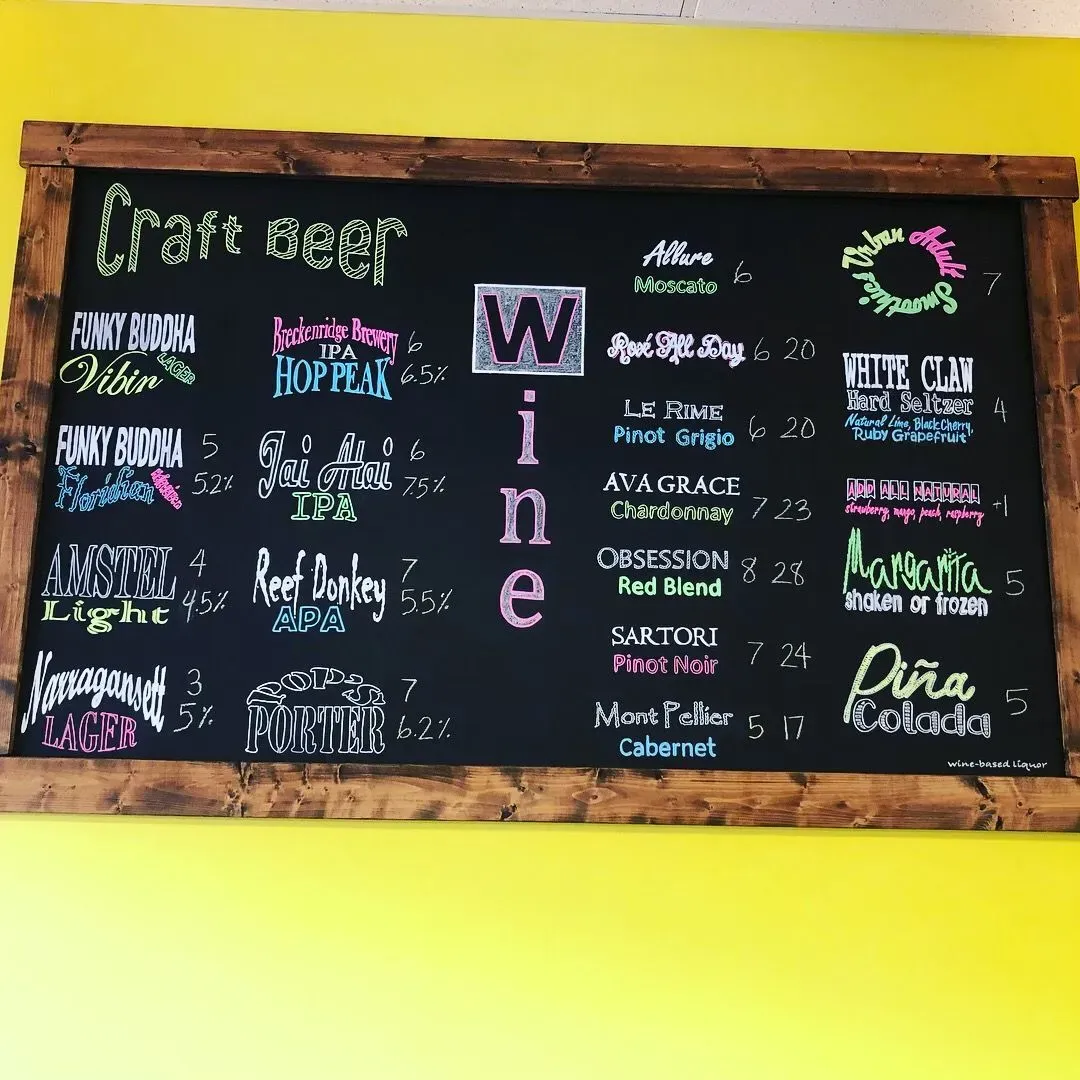 Craft Beer
FUNKY BUDDHA
Vibin LAGER
FUNKY BUDDHA 5
Floridian 5.2%
AMSTEL 4
Light 4.5%
Narragansett 3
LAGER 5%
Breckenridge Brewery 6
IPA
HOP PEAK 6.5%
Jai Alai 6
IPA 7.5%
Reef Donkey 7
APA 5.5%
POP'S 7
PORTER 6.2%
Wine
Allure 6
Moscato
Rosé All Day 6 20
LE RIME
Pinot Grigio 6 20
AVA GRACE
Chardonnay 7 23
OBSESSION 8 28
Red Blend
SARTORI 7 24
Pinot Noir
Mont Pellier 5 17
Cabernet
Urban Adult Smoothies 7
WHITE CLAW
Hard Seltzer 4
Natural Lime, Black Cherry,
Ruby Grapefruit
ADD ALL NATURAL +1
strawberry, mango, peach, raspberry
Margarita 5
shaken or frozen
Piña 5
Colada
wine-based liquor